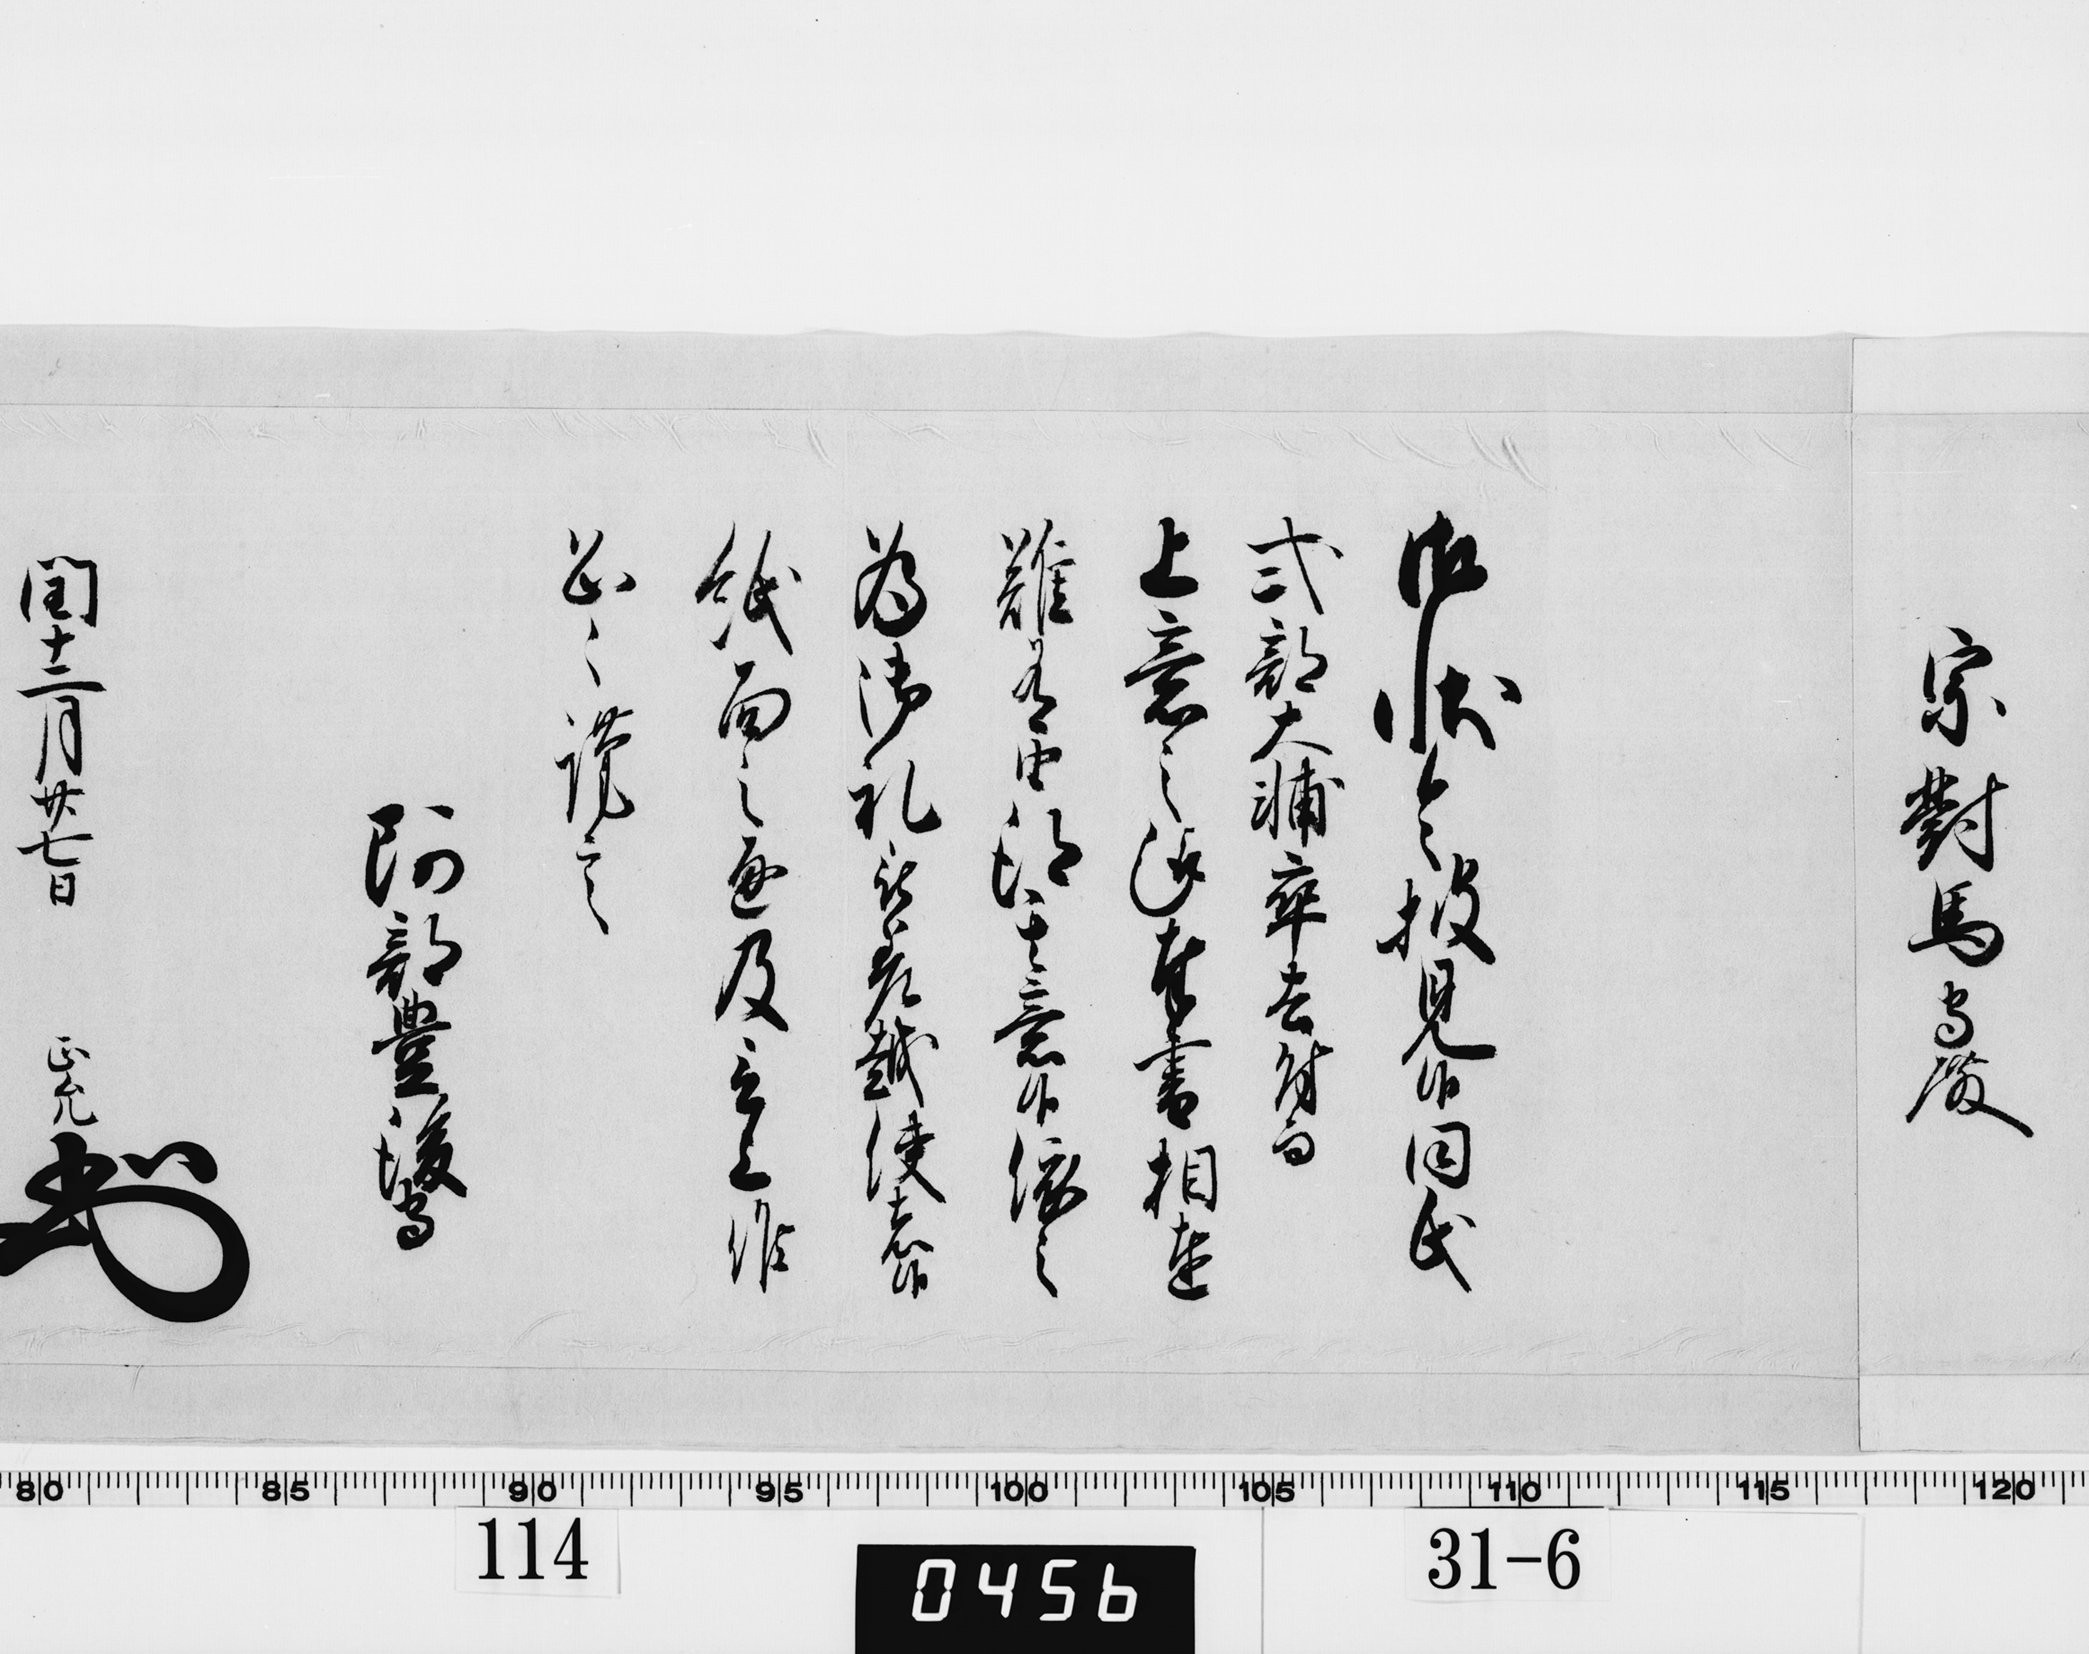 宗對馬守殿
御状令披見候同氏
式部大輔卒去付而
上意之趣奉書相達
難有由得其意候依之
為御礼被差越使者候
紙面之通及言上候
恐々謹言
阿部豊後守
閏十二月廿七日
正允
80 85 90 95 100 105 110 115 120
114
0456
31-6